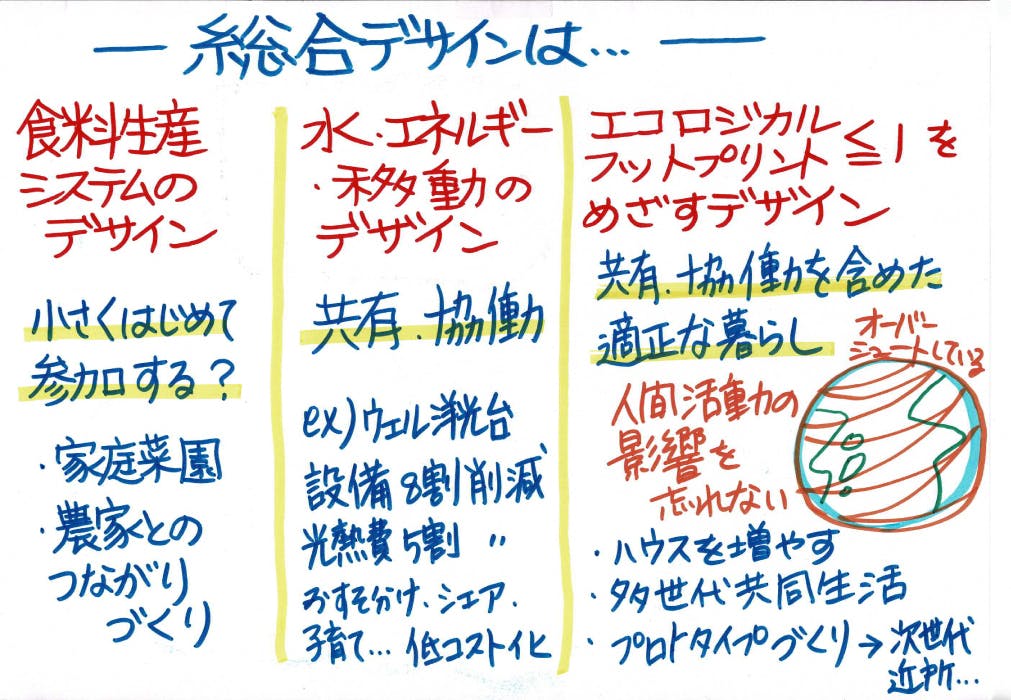 ― 総合デザインは… ―
食料生産
システムの
デザイン
小さくはじめて
参加する?
・家庭菜園
・農家との
つながり
づくり
水・エネルギー
・移動の
デザイン
共有・協働
ex)ウェル洋光台
設備8割削減
光熱費5割 〃
おすそ分け、シェア、
子育て…低コスト化
エコロジカル
フットプリント≦1を
めざすデザイン
共有、協働を含めた
適正な暮らし
オーバー
シュートしている
人間活動の
影響を
忘れない
・ハウスを増やす
・多世代共同生活
・プロトタイプづくり→次世代
近所…